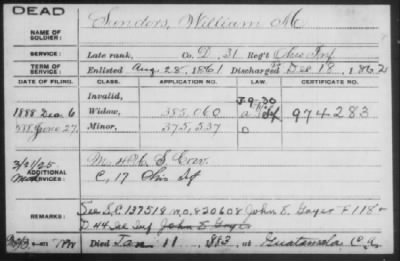 DEAD
NAME OF SOLDIER: Sanders, William M.
SERVICE: Late rank, Co. D, 31 Reg't Ohio Inf
TERM OF SERVICE: Enlisted Aug. 28, 1861 Discharged Dec. 18, 1862
DATE OF FILING. CLASS. APPLICATION NO. LAW. CERTIFICATE NO.
Invalid,
1888 Dec. 6 Widow, 385,060 974283
1888 June 27 Minor, 375,537
3/21/25
ADDITIONAL SERVICES:
C, 17 Ohio Inf
REMARKS: See S.C. 137518 820608 John E. F 118
D 44 Inf John E.
Died Jan 11, 1883, at Guatemala, C.A.